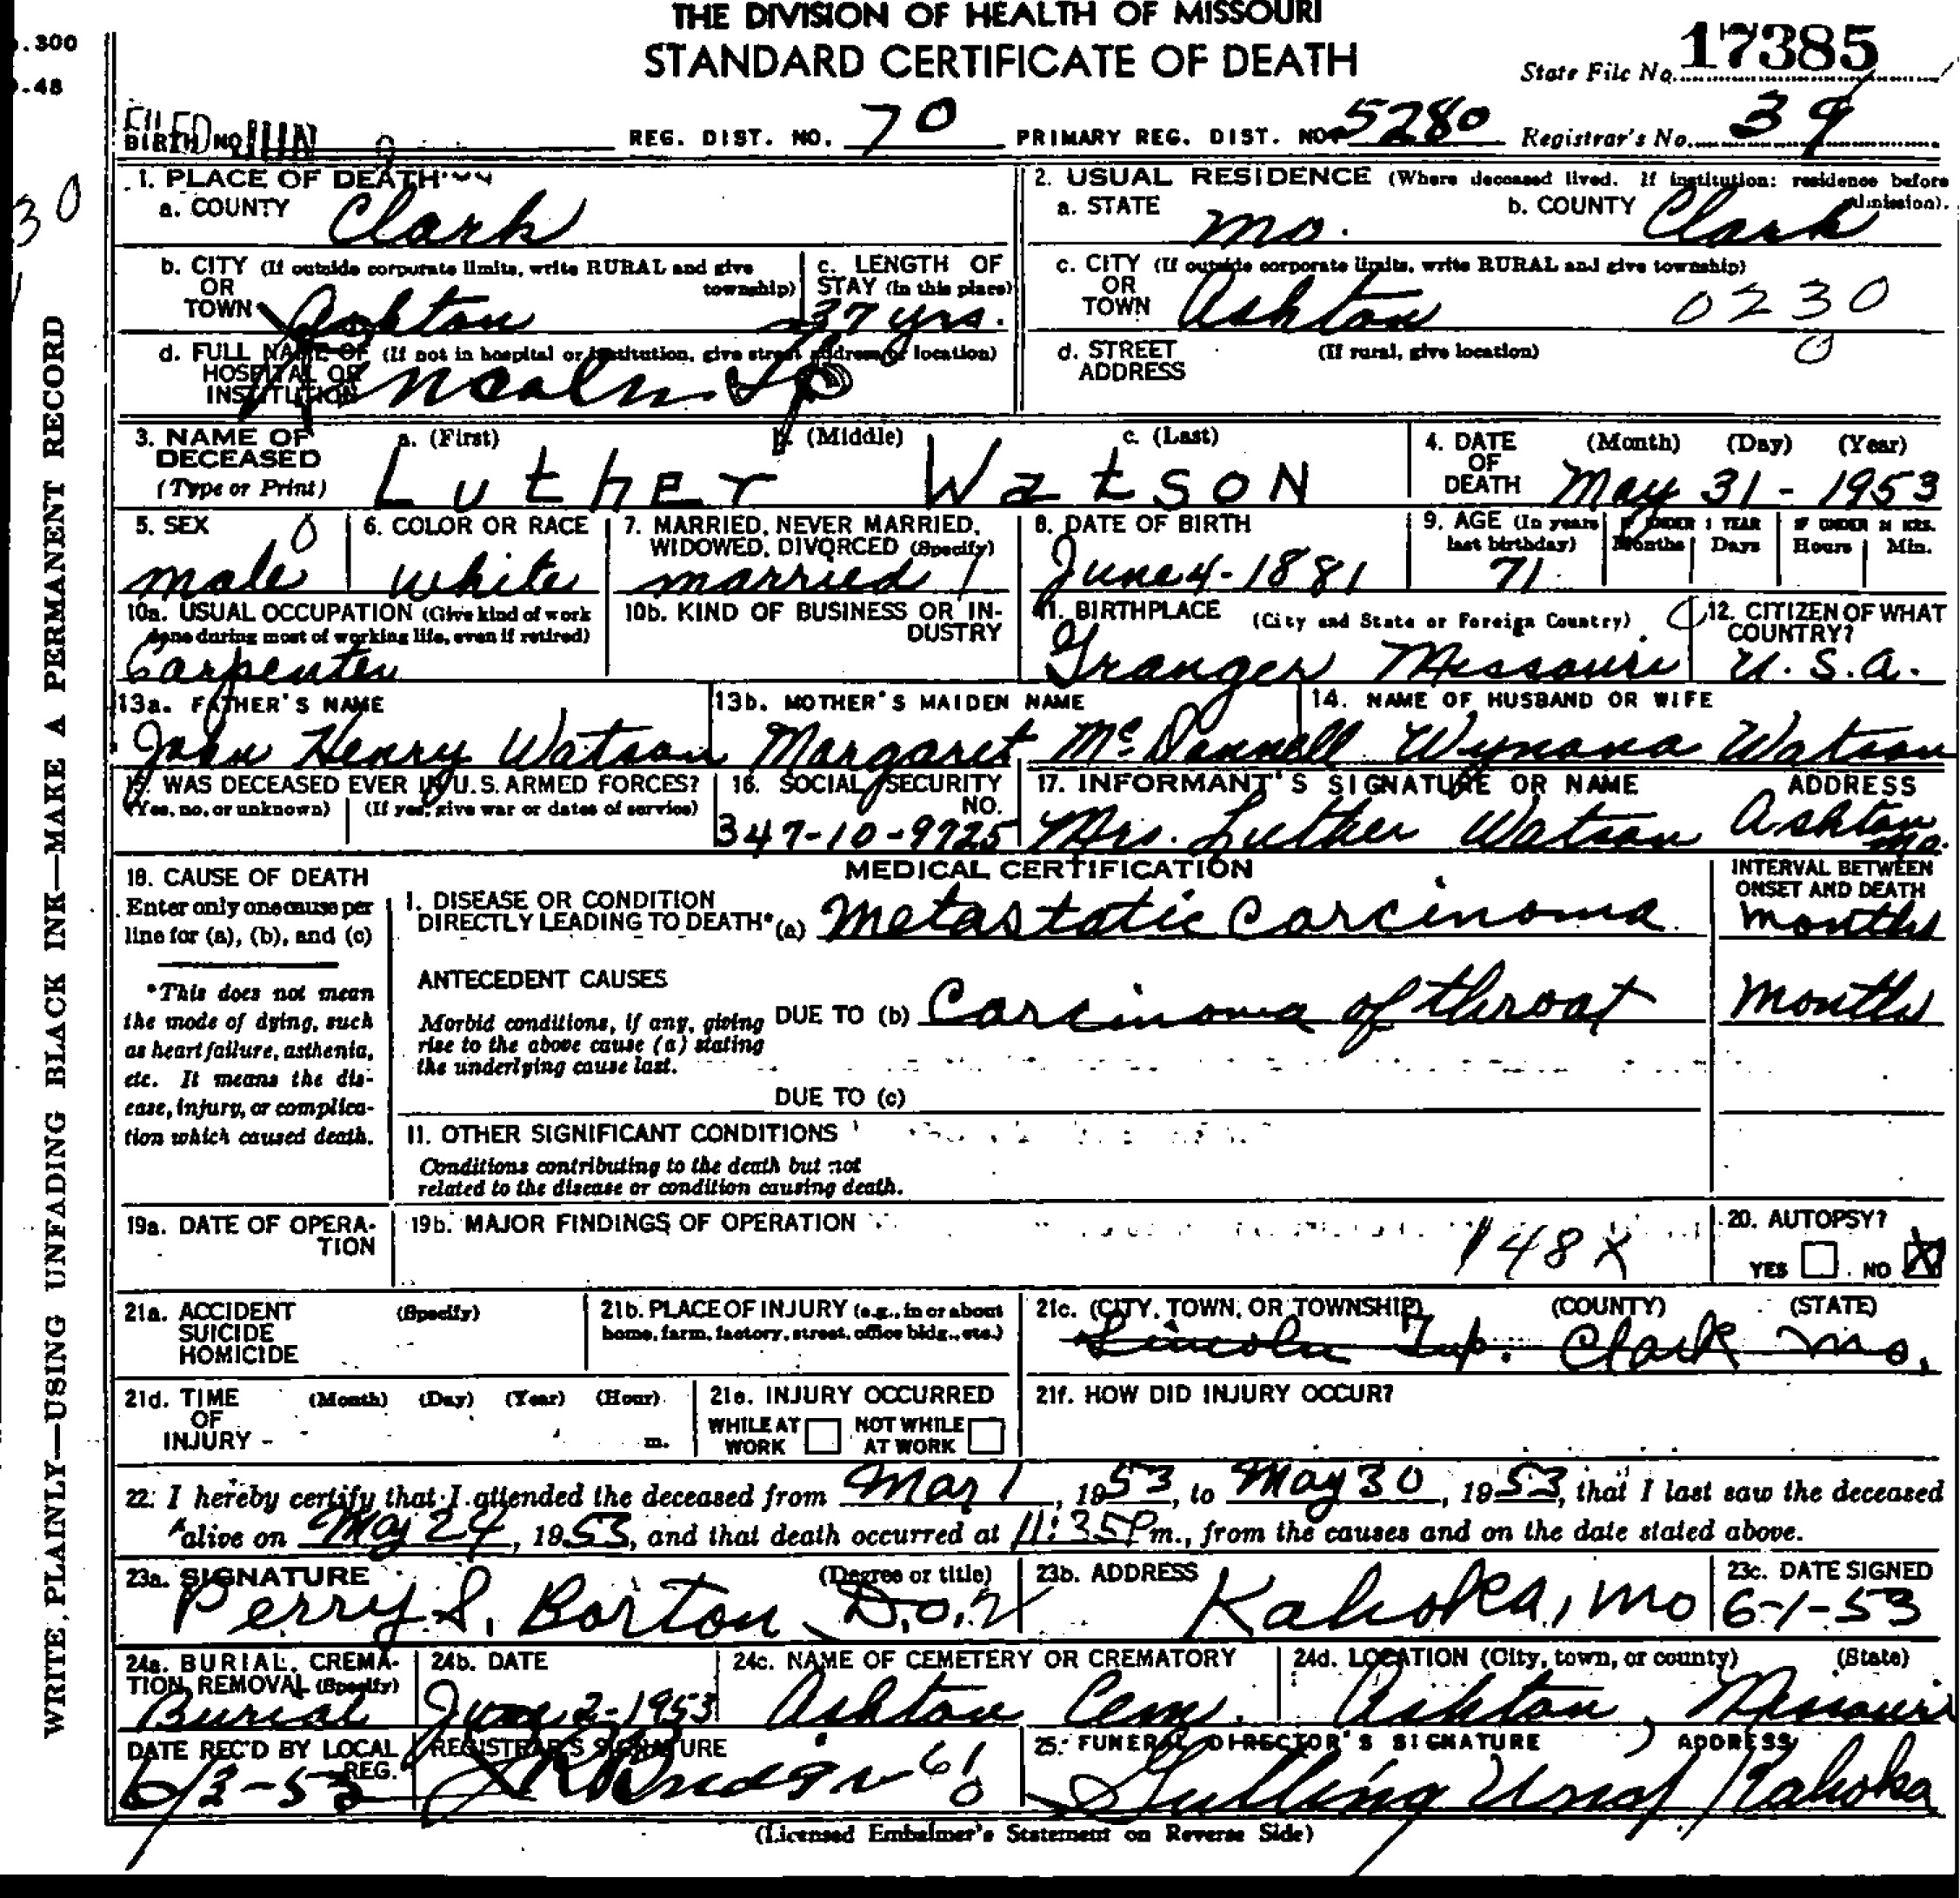 THE DIVISION OF HEALTH OF MISSOURI
STANDARD CERTIFICATE OF DEATH
.300
.48
State File No. 17385
FILED JUN
BIRTH NO.
REG. DIST. NO. 70
PRIMARY REG. DIST. NO. 5280
Registrar's No. 39
30
1. PLACE OF DEATH
a. COUNTY Clark
2. USUAL RESIDENCE (Where deceased lived. If institution: residence before admission).
a. STATE Mo. b. COUNTY Clark
b. CITY (If outside corporate limits, write RURAL and give township) OR TOWN Ashton
c. LENGTH OF STAY (in this place) 37 yrs.
c. CITY (If outside corporate limits, write RURAL and give township) OR TOWN Ashton 0230
0
d. FULL NAME OF HOSPITAL OR INSTITUTION (If not in hospital or institution, give street address or location) Lincoln
d. STREET ADDRESS (If rural, give location)
3. NAME OF DECEASED (Type or Print)
a. (First) b. (Middle) c. (Last)
Luther Watson
4. DATE OF DEATH (Month) (Day) (Year)
May 31 - 1953
5. SEX 0
male
6. COLOR OR RACE
white
7. MARRIED, NEVER MARRIED, WIDOWED, DIVORCED (Specify)
married 1
8. DATE OF BIRTH
June 4-1881
9. AGE (In years last birthday) 71
IF UNDER 1 YEAR Months Days
IF UNDER 24 HRS. Hours Min.
10a. USUAL OCCUPATION (Give kind of work done during most of working life, even if retired)
Carpenter
10b. KIND OF BUSINESS OR INDUSTRY
11. BIRTHPLACE (City and State or Foreign Country)
Granger Missouri
12. CITIZEN OF WHAT COUNTRY?
U.S.A.
13a. FATHER'S NAME
John Henry Watson
13b. MOTHER'S MAIDEN NAME
Margaret
14. NAME OF HUSBAND OR WIFE
Wynona Watson
15. WAS DECEASED EVER IN U.S. ARMED FORCES?
(Yes, no, or unknown) (If yes, give war or dates of service)
16. SOCIAL SECURITY NO.
347-10-9725
17. INFORMANT'S SIGNATURE OR NAME ADDRESS
Mrs. Luther Watson Ashton Mo.
18. CAUSE OF DEATH
Enter only one cause per line for (a), (b), and (c)
*This does not mean the mode of dying, such as heart failure, asthenia, etc. It means the disease, injury, or complication which caused death.
MEDICAL CERTIFICATION
INTERVAL BETWEEN ONSET AND DEATH
I. DISEASE OR CONDITION DIRECTLY LEADING TO DEATH* (a) Metastatic Carcinoma months
ANTECEDENT CAUSES
Morbid conditions, if any, giving rise to the above cause (a) stating the underlying cause last.
DUE TO (b) Carcinoma of throat months
DUE TO (c)
II. OTHER SIGNIFICANT CONDITIONS
Conditions contributing to the death but not related to the disease or condition causing death.
19a. DATE OF OPERATION
19b. MAJOR FINDINGS OF OPERATION
148X
20. AUTOPSY?
YES NO X
21a. ACCIDENT SUICIDE HOMICIDE (Specify)
21b. PLACE OF INJURY (e.g., in or about home, farm, factory, street, office bldg., etc.)
21c. (CITY, TOWN, OR TOWNSHIP) (COUNTY) (STATE)
Lincoln Twp. Clark Mo.
21d. TIME OF INJURY (Month) (Day) (Year) (Hour) m.
21e. INJURY OCCURRED
WHILE AT WORK NOT WHILE AT WORK
21f. HOW DID INJURY OCCUR?
22. I hereby certify that I attended the deceased from Mar 1, 1953, to May 30, 1953, that I last saw the deceased
alive on May 24, 1953, and that death occurred at 11:35 P m., from the causes and on the date stated above.
23a. SIGNATURE (Degree or title)
Perry S. Borton D.O.
23b. ADDRESS
Kahoka, Mo
23c. DATE SIGNED
6-1-53
24a. BURIAL, CREMATION, REMOVAL (Specify)
Burial
24b. DATE
June 2-1953
24c. NAME OF CEMETERY OR CREMATORY
Ashton Cem.
24d. LOCATION (City, town, or county) (State)
Ashton, Missouri
DATE REC'D BY LOCAL REG.
REGISTRAR'S SIGNATURE
25. FUNERAL DIRECTOR'S SIGNATURE ADDRESS
Kahoka
(Licensed Embalmer's Statement on Reverse Side)
WRITE PLAINLY—USING UNFADING BLACK INK—MAKE A PERMANENT RECORD